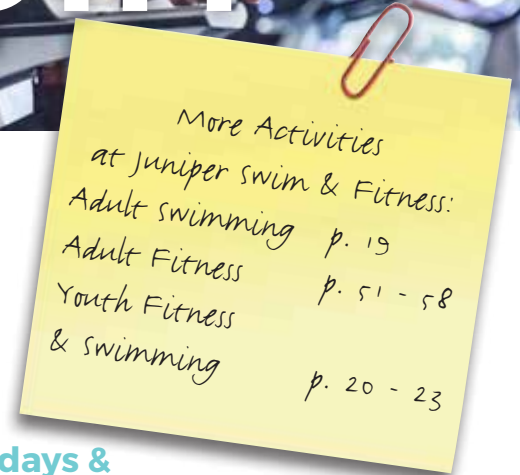 More Activities
at Juniper Swim & Fitness:
Adult Swimming p. 19
Adult Fitness p. 51 - 58
Youth Fitness
& Swimming p. 20 - 23
days &